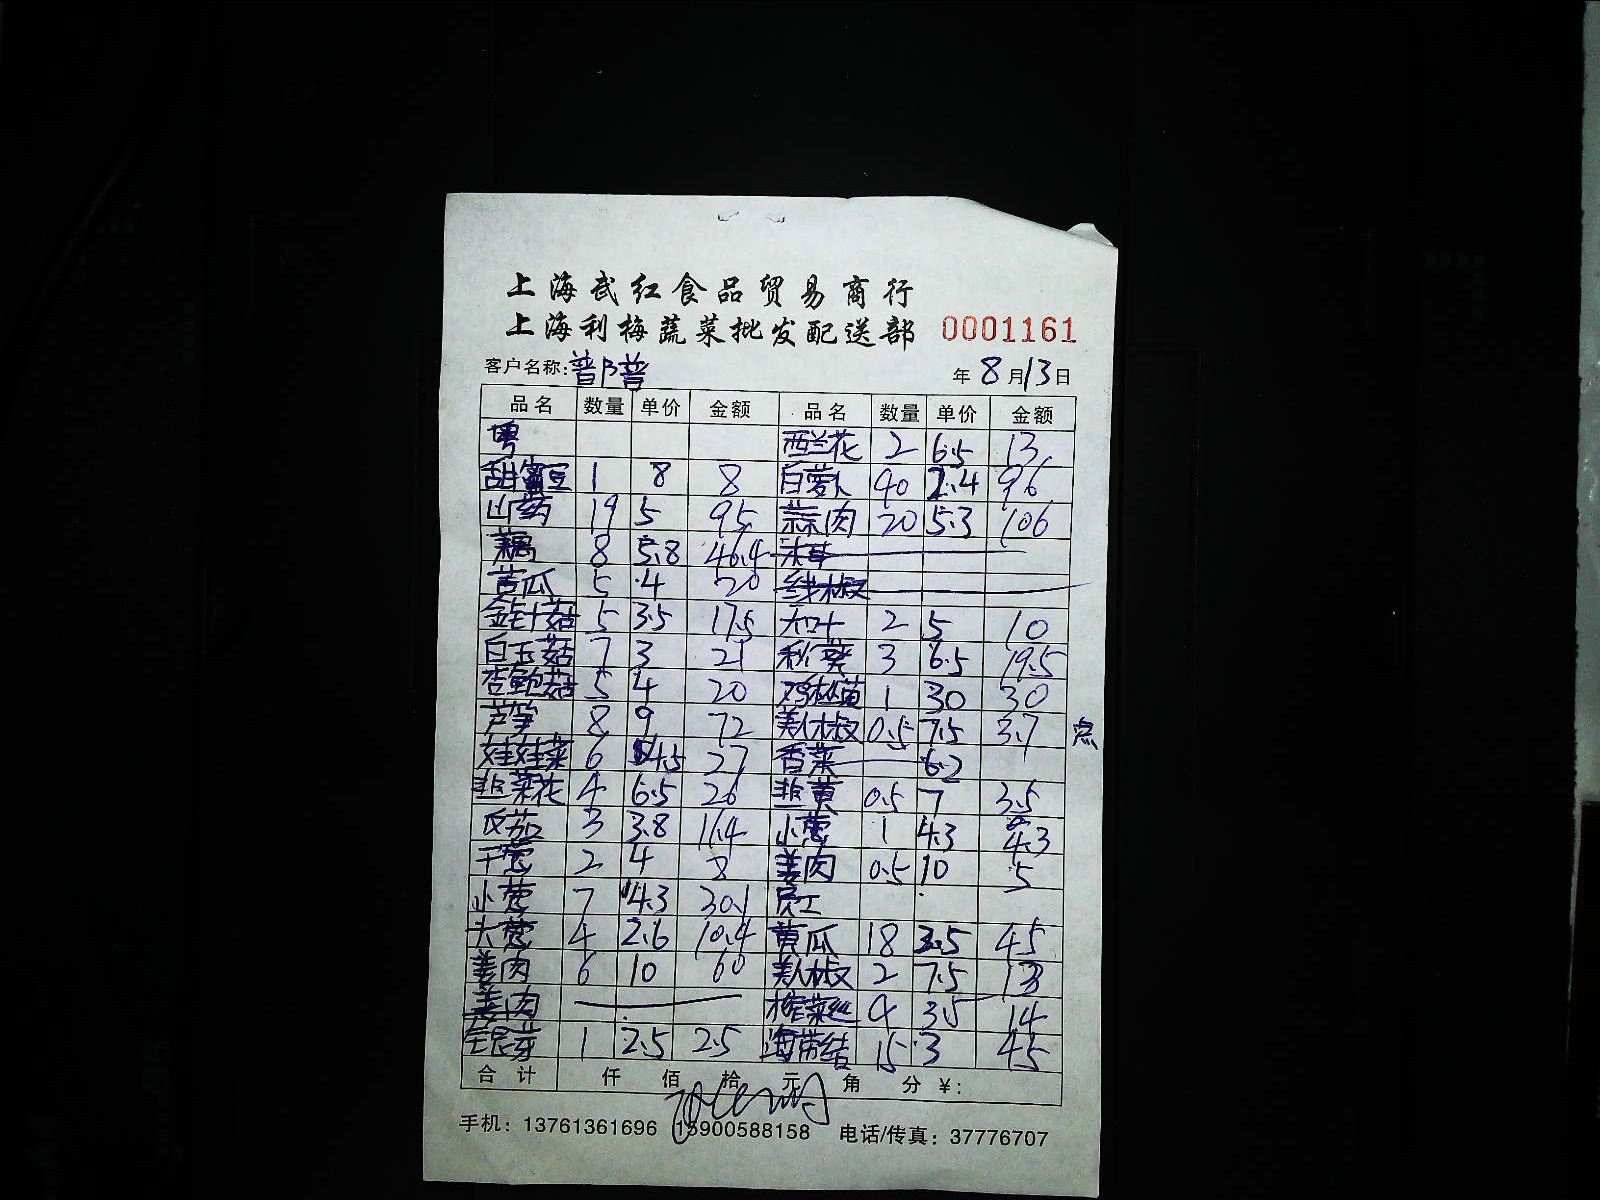 上海武红食品贸易商行
上海利梅蔬菜批发配送部 0001161
客户名称: 普 普 年 8 月 13 日
品名 数量 单价 金额 品名 数量 单价 金额
粤 西兰花 2 6.5 13
甜蜜豆 1 8 8 白萝卜 40 2.4 96
山药 19 5 95 蒜肉 20 5.3 106
藕 8 5.8 46.4
苦瓜 5 4 20 线椒
金针菇 5 3.5 17.5 2 5 10
白玉菇 7 3 21 秋葵 3 6.5 19.5
杏鲍菇 5 4 20 鸡枞菌 1 30 30
芦笋 8 9 72 美人椒 0.5 7.5 3.7 点
娃娃菜 6 4.5 27 香菜 6.2
韭菜花 4 6.5 26 韭黄 0.5 7 3.5
反茄 3 3.8 11.4 小葱 1 4.3 4.3
干葱 2 4 8 姜肉 0.5 10 5
小葱 7 4.3 30.1 员工
大葱 4 2.6 10.4 黄瓜 18 2.5 45
姜肉 6 10 60 美人椒 2 7.5 13
姜肉 榨菜丝 4 3.5 14
芽 1 2.5 2.5 海带结 15 3 45
合计 仟 佰 拾 元 角 分 ¥:
手机: 13761361696 15900588158 电话/传真: 37776707